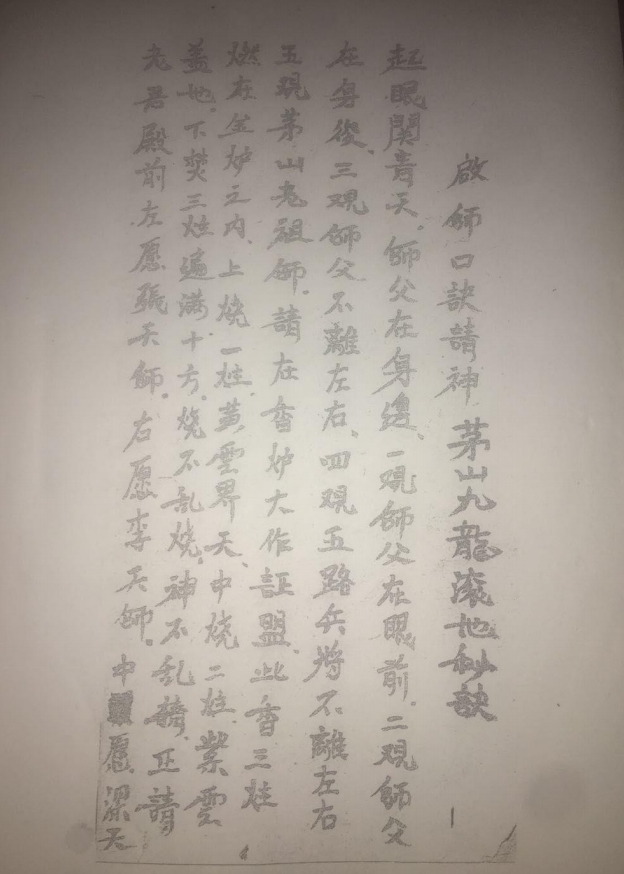 啟師口訣請神 茅山九龍滚地秘訣
起眼閞青天.師父在身邊、一观師父在眼前.二观師父
在身後、三观師父不離左右、四观五路兵将不離左右
五观茅山老祖師.請在香炉大作証盟.此香三炷
燃在金炉之内、上燒一炷、黄雲界天、中燒二炷、紫雲
蓋地、下焚三炷遍满十方.燒不乱燒、神不乱請、正請
老君殿前左愿張天師.右愿李天師.中愿深天